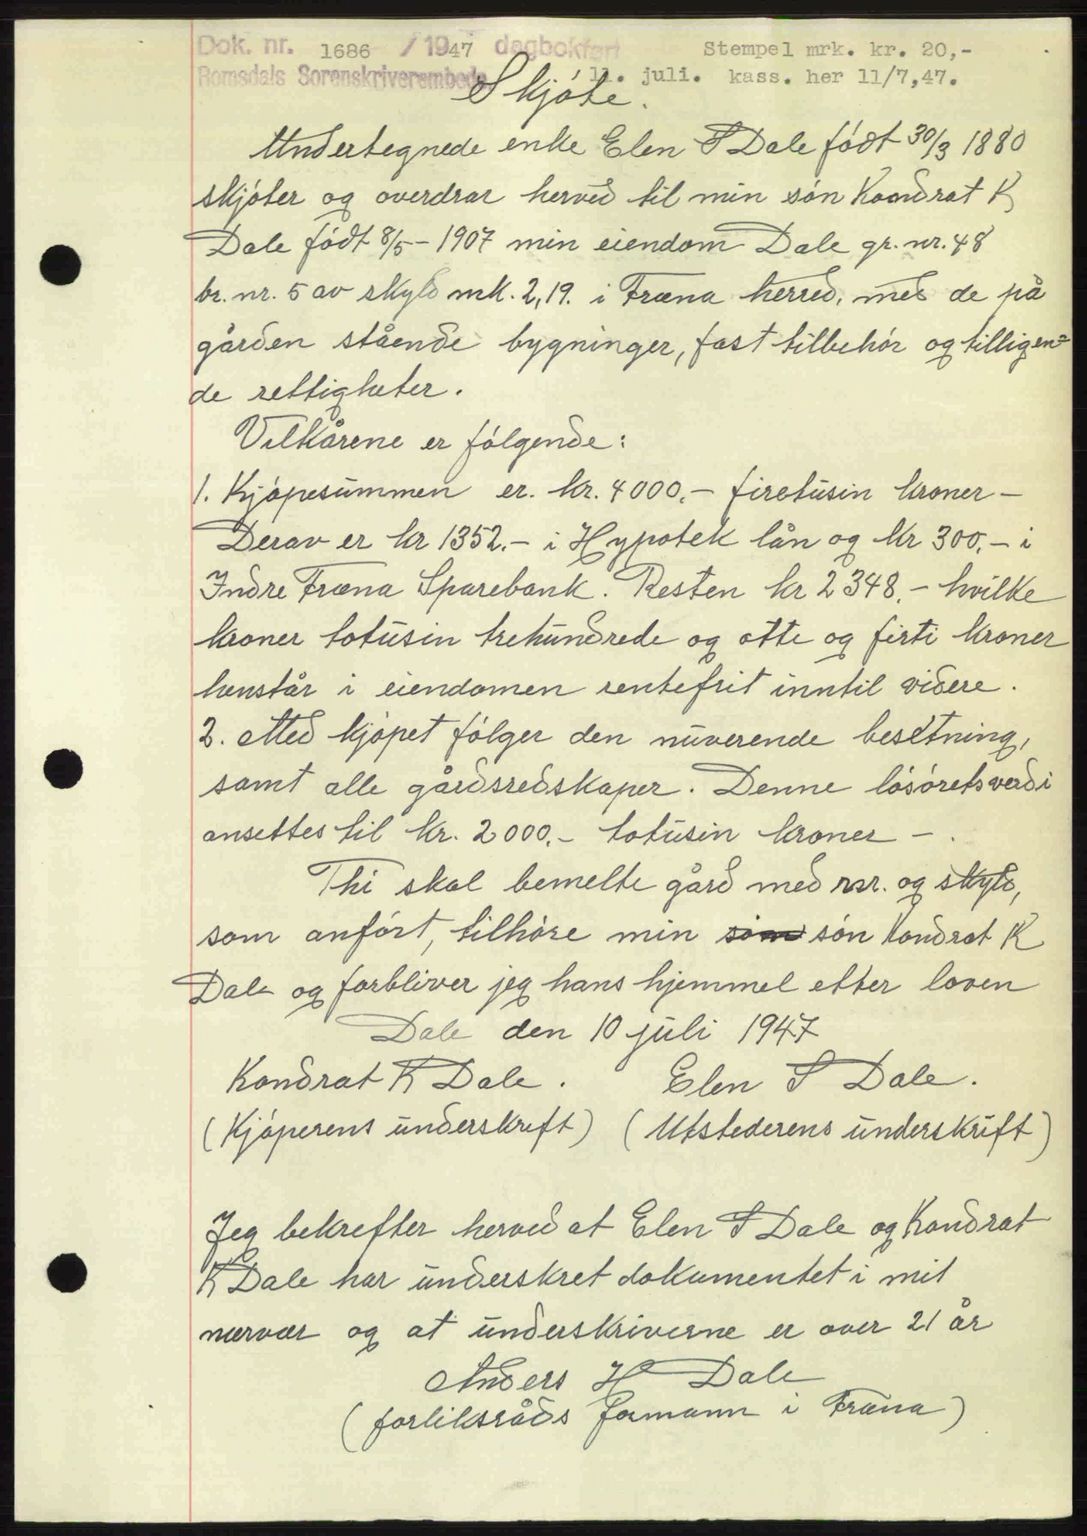 Dok. nr. 1686 / 1947 dagbokført Stempel mrk. kr. 20,-
Romsdals Sorenskriverembede 11. juli. kass. her 11/7,47.
Skjøte.
Undertegnede enke Elen S Dale født 30/3 1880
skjøter og overdrar herved til min søn Kondrat K
Dale født 8/5-1907 min eiendom Dale gr. nr. 48
br. nr. 5 av skyld mk. 2,19. i Fræna herred, med de på
gården stående bygninger, fast tilbehør og tilligen=
de rettigheter.
Vilkårene er følgende:
1. Kjøpesummen er. kr. 4000.- firetusin kroner -
Derav er kr 1352.- i Hypotek lån og kr 300.- i
Indre Fræna Sparebank. Resten kr 2348.- hvilke
kroner totusin trehundrede og otte og firti kroner
henstår i eiendomen rentefrit inntil videre.
2. Med kjøpet følger den nuverende besetning,
samt alle gårdsredskaper. Denne løsøretsverdi
ansettes til kr. 2000.- totusin kroner -.
Thi skal bemelte gård med nr. og skyld,
som anført, tilhøre min søn Kondrat K
Dale og forbliver jeg hans hjemmel etter loven
Dale den 10 juli 1947
Kondrat K Dale. Elen S Dale.
(Kjøperens underskrift) (Utstederens underskrift)
Jeg bekrefter herved at Elen S Dale og Kondrat
K Dale har underskret dokumentet i mit
nærvær og at underskriverne er over 21 år
Anders H Dale
(forliksråds formann i Fræna)